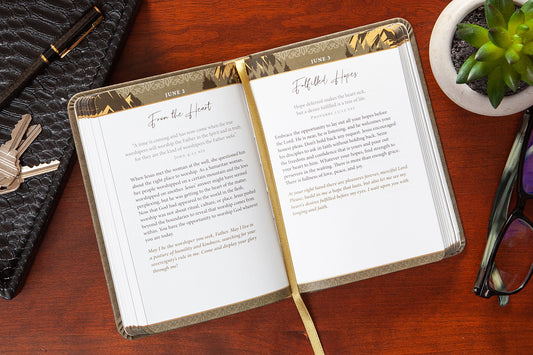 JUNE 2
From the Heart
"A time is coming and has now come when the true
worshipers will worship the Father in the Spirit and in truth,
for they are the kind of worshipers the Father seeks."
JOHN 4:23 NIV
When Jesus met the woman at the well, she questioned him
about the right place to worship. As a Samaritan, she was
worshiped on a certain mountain and the Jews
worshiped on another. Jesus' answer might have seemed
perplexing, but he was getting to the heart of the matter.
Now that God had appeared to the world in the flesh,
worship was not about ritual, culture, or place. Jesus pulled
beyond the boundaries to reveal that worship comes from
within. You have the opportunity to worship God wherever
you are today.
May I be the worshiper you seek, Father. May I live in
a posture of humility and kindness, searching for your
sovereignty's rule in me. Come and display your glory
through me!
JUNE 3
Fulfilled Hopes
Hope deferred makes the heart sick,
but a desire fulfilled is a tree of life.
PROVERBS 13:12
Embrace the opportunity to let out all your hopes before
the Lord. He is near, he is listening, and he welcomes your
honest pleas. Don't hold back any request. Jesus encouraged
his disciples to ask in faith without holding back. Share
the freedom and confidence that is yours and pour out
your heart to him. Whatever your hopes, feel strength to
persevere in the waiting. There is more than enough grace.
There is fullness of love, peace, and joy.
At your right hand there are pleasures forever, merciful Lord.
Please, build in me a hope that lasts, but also let me see my
heart's desires fulfilled before my eyes. I wait upon you with
longing and faith.